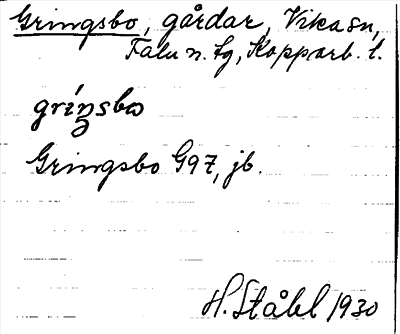 Gringsbo, gårdar, Vika sn,
Falu n. tg, Kopparb. l.
gríŋsbω
Gringsbo G97, jb.
H. Ståhl 1930